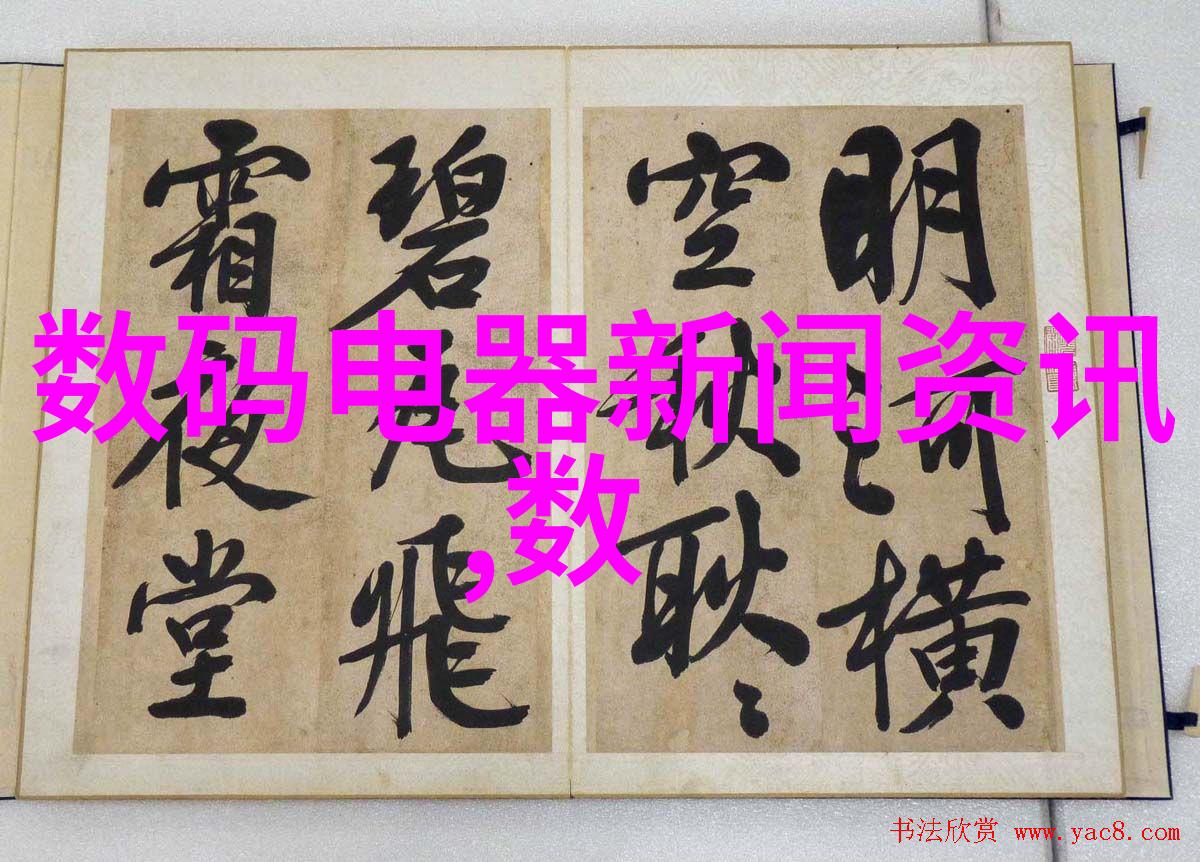 明河橫
空秋耿〻
碧瓦飛
霜夜堂
数码电器新闻资讯
,数
书法欣赏 www.yac8.com